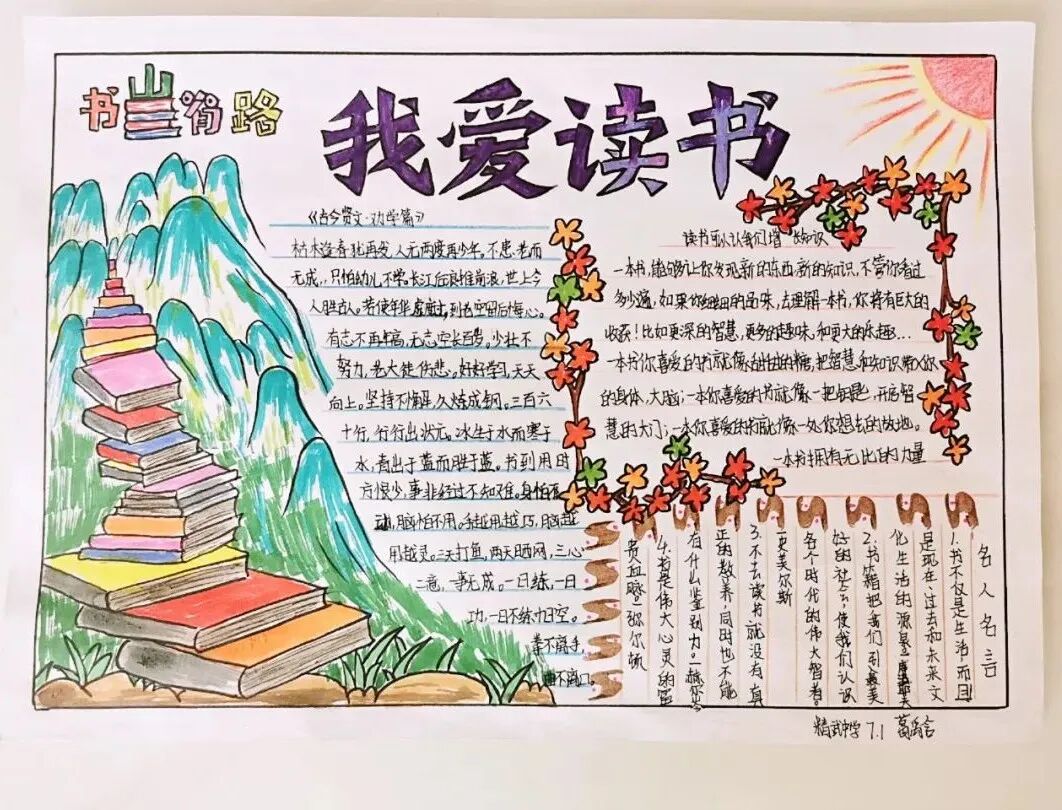 书山有路
我爱读书
《古今贤文·劝学篇》
枯木逢春犹再发,人无两度再少年。不患老而
无成,只怕幼儿不学。长江后浪推前浪,世上今
人胜古人。若使年华虚度过,到老空留后悔心。
有志不再年高,无志空长百岁。少壮不
努力,老大徒伤悲。好好学习,天天
向上。坚持不懈,久炼成钢。三百六
十行,行行出状元。冰生于水而寒于
水,青出于蓝而胜于蓝。书到用时
方恨少,事非经过不知难。身怕不
动,脑怕不用。手越用越巧,脑越
用越灵。三天打鱼,两天晒网,三心
二意,一事无成。一日练,一日
功,一日不练十日空。
拳不离手,
曲不离口。
读书可以让我们增长知识
一本书,能够让你发现新的东西,新的知识,不管你看过
多少遍,如果你细细的品味,去理解一本书,你将有巨大的
收获!比如更深的智慧,更多的趣味,和更大的乐趣...
一本书你喜爱的书就像甜甜的糖,把智慧和知识带入你
的身体,大脑;一本你喜爱的书就像一把钥匙,开启智
慧的大门;一本你喜爱的书就像一处你想去的故地。
一本书拥有无比的力量
名人名言
1.书不仅是生活,而且
是现在、过去和未来文
化生活的源泉——库法耶夫
2.书籍把我们引入最美
好的社会,使我们认识
各个时代的伟大智者。
——史美尔斯
3.不去读书就没有真
正的教养,同时也不能
有什么鉴别力。——赫尔岑
4.书是伟大心灵的富
贵血脉——弥尔顿
精武中学 7.1 葛禹含